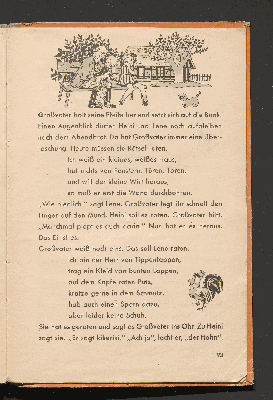 Großvater holt seine Pfeife her und setzt sich auf die Bank.
Einen Augenblick dürfen Heini und Lene noch aufbleiben
nach dem Abendbrot. Da hat Großvater immer eine Über-
raschung. Heute müssen sie Rätsel raten.
Ich weiß ein kleines, weißes Haus,
hat nichts von Fenstern, Türen, Toren,
und will der kleine Wirt heraus,
so muß er erst die Wand durchbohren.
sagt Lene. Großvater legt ihr schnell den
Finger auf den Mund. Heini soll es raten. Großvater hilft.
„Manchmal piept es auch darin.“ Nun hat er es heraus.
Das Ei ist es.
Großvater weiß noch eins. Das soll Lene raten.
Ich bin der Herr von
trag ein Kleid von bunten Lappen,
auf dem Kopfe roten Putz,
kratze gerne in dem Schmutz,
hab auch einen Sporn dazu,
aber leider keine Schuh.
Sie hat es geraten und sagt es Großvater ins Ohr. Zu Heini
sagt sie: „Er sagt kikeriki.“ „Ach ja“, lacht er, „der Hahn“.